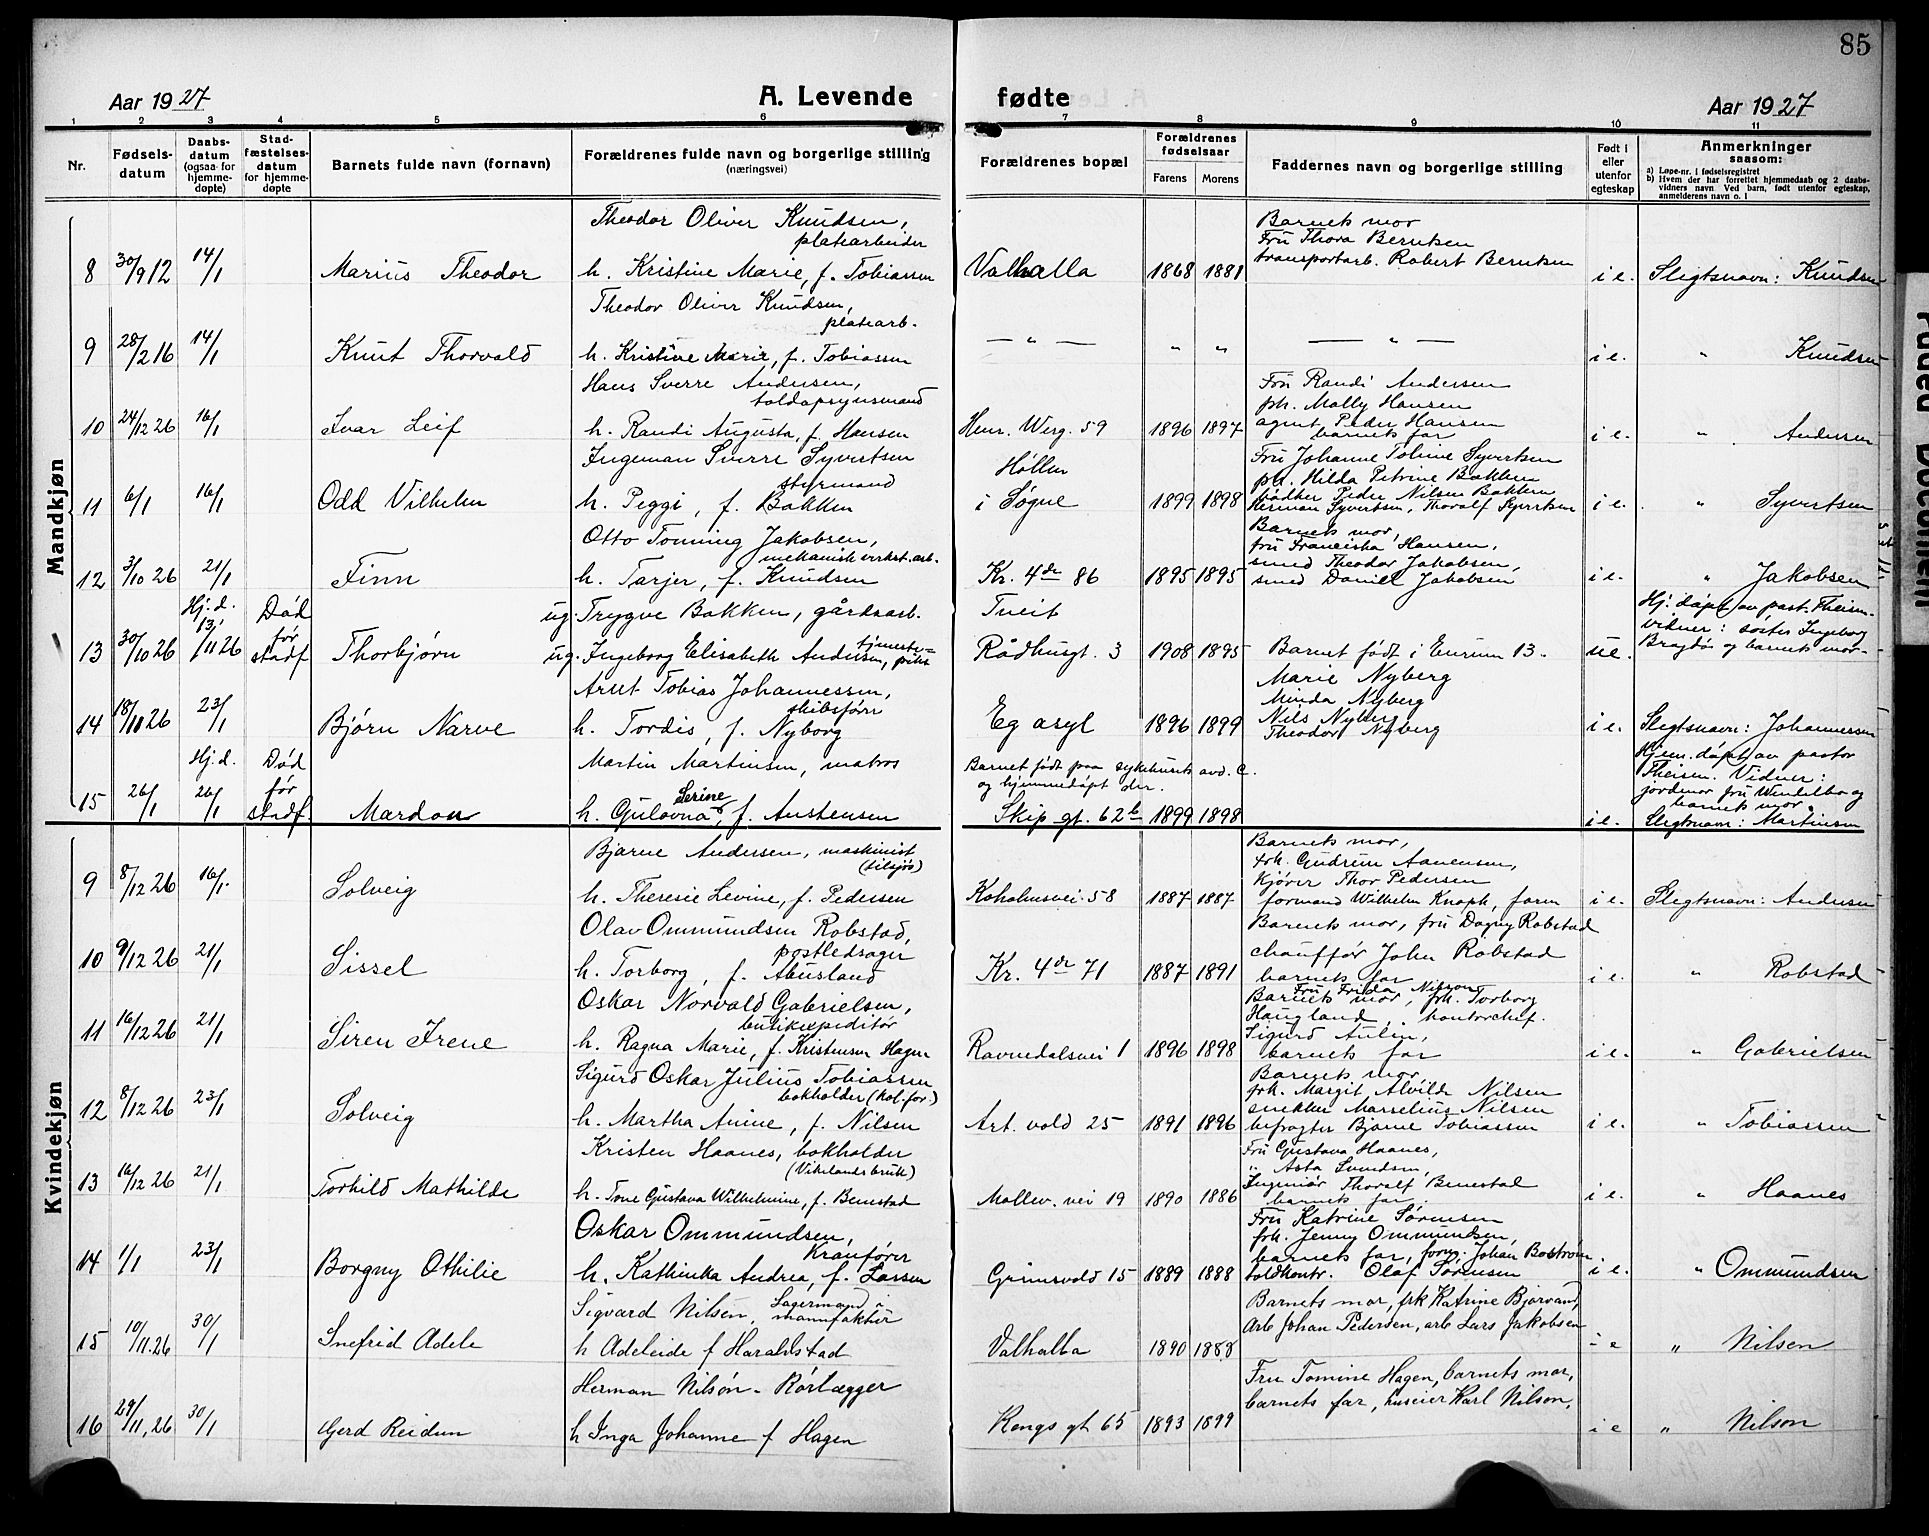 85
Aar 1927
A. Levende fødte
Aar 1927
1 2 3 4 5 6 7 8 9 10 11
Nr.
Fødsels-
datum
Daabs-
datum
(ogsaa for
hjemme-
døpte)
Stad-
fæstelses-
datum
for hjemme-
døpte
Barnets fulde navn (fornavn)
Forældrenes fulde navn og borgerlige stilling
(næringsvei)
Forældrenes bopæl
Forældrenes
fødselsaar
Farens Morens
Faddernes navn og borgerlige stilling
Født i
eller
utenfor
egteskap
Anmerkninger
saasom:
a) Løpe-nr. i fødselsregistret
b) Hvem der har forrettet hjemmedaab og 2 daabs-
vidners navn Ved barn, født utenfor egteskap,
anmelderens navn o. l
Mandkjøn
8 30/9 12 14/1 Marius Theodor
Theodor Oliver Knudsen,
platearbeider
h. Kristine Marie, f. Tobiassen
Valhalla 1868 1881
Barnets mor
Fru Thora Berntsen
transportarb. Robert Berntsen
i e. Slegtsnavn: Knudsen
9 28/2 16 14/1 Knut Thorvald
Theodor Oliver Knudsen,
platearb.
h. Kristine Marie, f. Tobiassen
— " — " " — " —
i e. " Knudsen
10 24/12 26 16/1 Ivar Leif
Hans Sverre Andersen,
toldopsynsmand
h. Randi Augusta, f. Hansen
Henr. Werg. 59 1896 1897
Fru Randi Andersen
frk. Molly Hansen
agent Peder Hansen
barnets far
i e. " Andersen
11 6/1 16/1 Odd Vilhelm
Ingeman Sverre Syvertsen
styrmand
h. Peggi, f. Bakken
Høllen
i Søgne 1899 1898
Fru Johanne Toline Syvertsen
frk. Hilda Petrine Bakken
Peder Nilsen Bakken
Herman Syvertsen, Thoralf Syvertsen
i e. " Syvertsen
12 3/10 26 21/1 Finn
Otto Tonning Jakobsen,
mekanisk verkst.arb.
h. Tarjer, f. Knudsen
Kr. 4des 86 1895 1895
Barnets mor,
fru Franciska Hansen,
smed Theodor Jakobsen,
smed Daniel Jakobsen
i e. " Jakobsen
13 30/10 26 Hj. d. 13/11 26 Død før stadf. Thorbjørn
ug. Trygve Bakken, gårdsarb.
ug. Ingeborg Elisabeth Andersen, tjeneste-
pike
Tveit
Rådhusgt. 3 1908 1895
Barnet født i Eurum 13.
u e.
Hj. døpt av past. Theisen.
vidner: søster Ingeborg
og barnets mor.
14 18/11 26 23/1 Bjørn Narve
Arnt Tobias Johannessen,
skibsfører
h. Tordis, f. Nyborg
Eg asyl 1896 1899
Marie Nyberg
Minda Nyberg
Nils Nyberg
Theodor Nyberg
i e. Slegtsnavn: Johannessen
15 26/1 Hj. d. 26/1 Død før stadf. Mardon
Martin Martinsen, matros
h. Gulovna Serine, f. Austensen
Barnet født paa sykehusets avd. C.
og hjemmedøpt der.
Skip. gt. 62b 1899 1898
i e.
Hjem. døpt av pastor
Theisen. Vidner:
jordmor fru Wendelbo og
barnets mor.
Slegtsnavn: Martinsen
Kvindekjøn
9 8/12 26 16/1. Solveig
Bjarne Andersen, maskinist
(tilsjøs)
h. Theresie Levine, f. Pedersen
Koholmsvei 58 1887 1887
Barnets mor,
frk. Gudrun Aanensen,
kjører Thor Pedersen
formand Wilhelm Knoph, farm
i e. Slegtsnavn: Andersen
10 9/12 26 21/1 Sissel
Olav Ommundsen Robstad,
postledsager
h. Torborg, f. Abusland
Kr. 4des 71 1887 1891
Barnets mor, fru Dagny Robstad
chauffør John Robstad
barnets far
i e. " Robstad
11 16/12 26 21/1 Siren Irene
Oskar Norvald Gabrielsen,
butikexpeditør
h. Ragna Marie, f. Kristensen Hagen
Ravnedalsvei 1 1896 1898
Fru Frida Nilson
Barnets mor, frk. Torborg
Haugland, kontorchef.
Sigurd Aulin,
barnets far
i e. " Gabrielsen
12 8/12 26 23/1 Solveig
Sigurd Oskar Julius Tobiassen
bokholder (kol. for.)
h. Martha Anine, f. Nilsen
Art. vold 25 1891 1896
Barnets mor
frk. Margit Alvilde Nilsen
snekker Marselius Nilsen
befragter Bjarne Tobiassen
i e. " Tobiassen
13 16/12 26 21/1 Torhild Mathilde
Kristen Haanes, bokholder
(Vikelandsbruk)
h. Tone Gustava Wilhelmine, f. Benestad
Møllev. vei 19 1890 1886
Fru Gustava Haanes,
" Asta Svendsen,
Ingeniør Thoralf Benestad
barnets far.
i e. " Haanes
14 1/1 23/1 Borgny Othilie
Oskar Ommundsen,
Kranfører
h. Kathinka Andrea, f. Lassen
Grimsvold 15 1889 1888
Fru Katrine Sørensen
frk. Jenny Ommundsen,
barnets far, form. Johan Bostrøm.
toldkontr. Olaf Sørensen
i e. " Ommundsen
15 10/11.26 30/1 Snefrid Adele
Sigvard Nilsen, Lagermand i
manufaktur
h Adeleide f Haraldstad
Valhalla 1890 1888
Barnets mor, frk Katrine Bjorvand,
Arb Johan Pedersen, arb Lars Jakobsen
i e " Nilsen
16 29/11, 26 30/1 Gerd Reidun
Herman Nilson - Rørlægger
h Inga Johanne f Hagen
Kongs gt 65 1893 1899
Fru Tomine Hagen, barnets mor,
barnets far, huseier Karl Nilson,
i e " Nilson